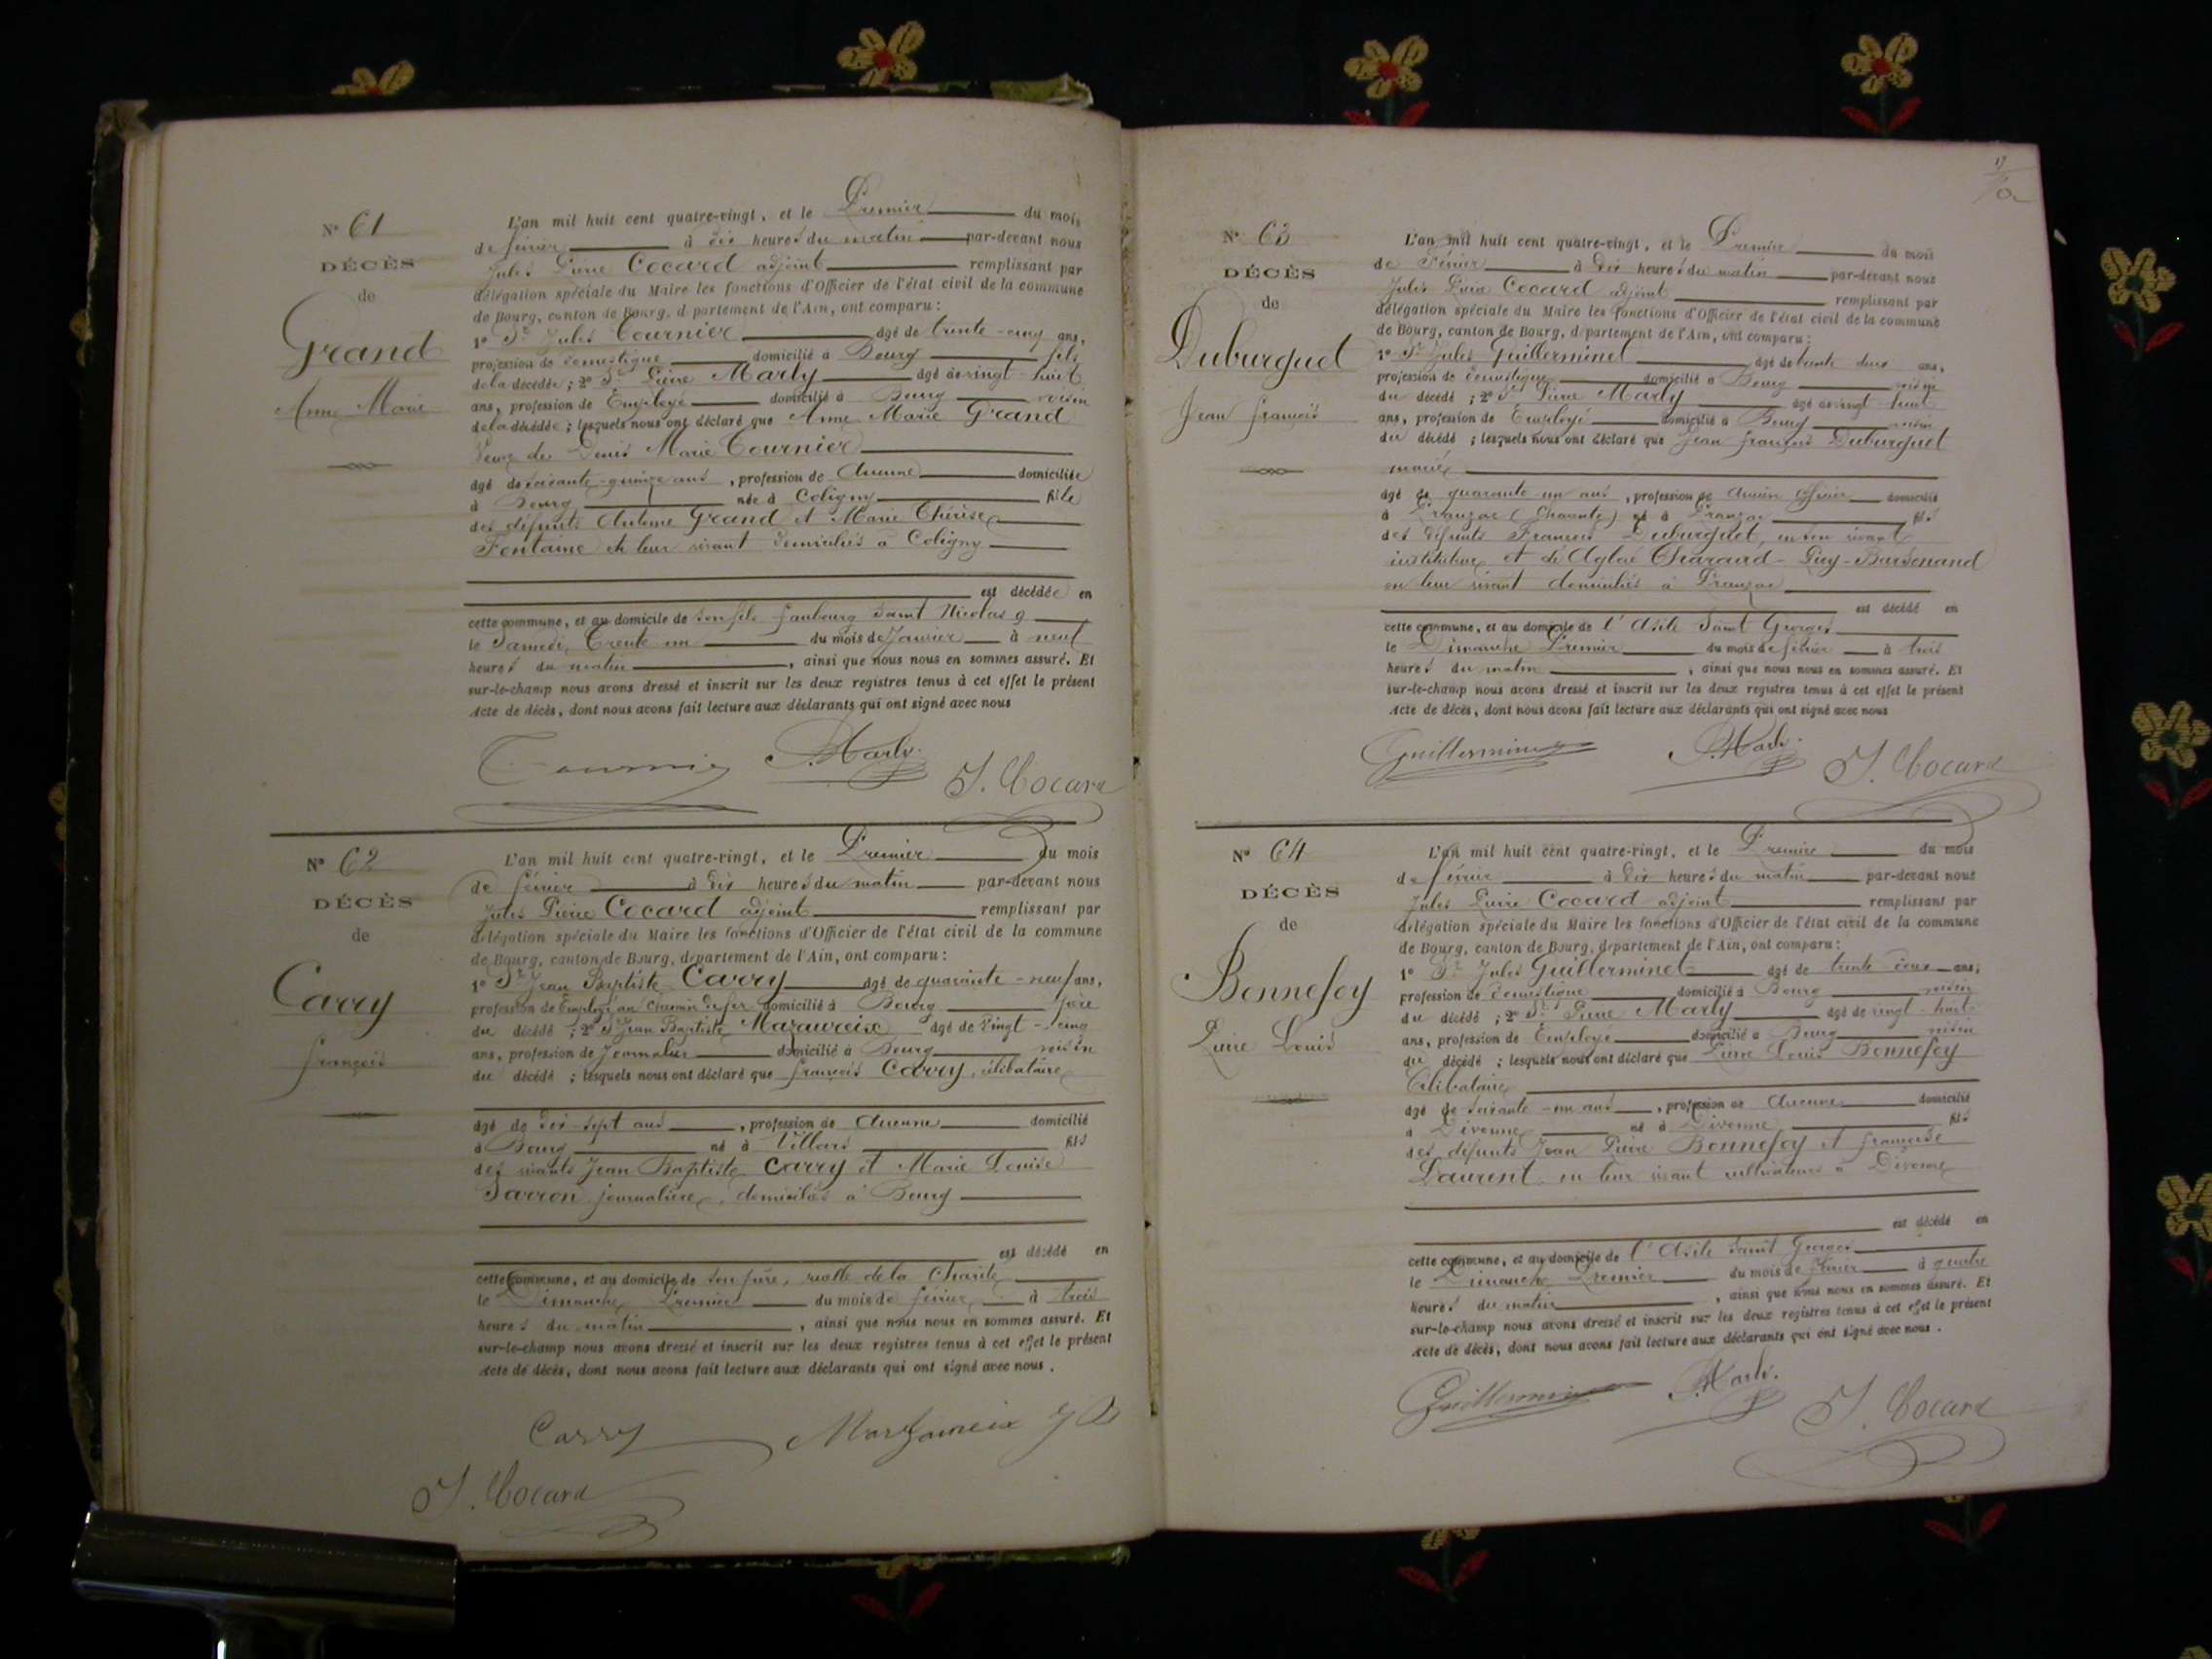 N° 61
DÉCÈS
de
Grand
Anne Marie
L'an mil huit cent quatre-vingt, et le Premier du mois
de février à dix heures du matin par-devant nous
Jules Pierre Cocard adjoint remplissant par
délégation spéciale du Maire les fonctions d'Officier de l'état civil de la commune
de Bourg, canton de Bourg, département de l'Ain, ont comparu :
1° Sr Jules Tournier âgé de trente-cinq ans,
profession de domestique domicilié à Bourg fils
de la décédée ; 2° Sr Pierre Marly âgé de vingt-huit
ans, profession de Employé domicilié à Bourg voisin
de la décédée ; lesquels nous ont déclaré que Anne Marie Grand
Veuve de Denis Marie Tournier
âgé de soixante-quinze ans, profession de Aucune domiciliée
à Bourg née à Coligny fille
des défunts Antoine Grand et Marie Thérèse
Fontaine de leur vivant domiciliés à Coligny
est décédée en
cette commune, et au domicile de son fils faubourg Saint Nicolas 9
le Samedi, Trente un du mois de Janvier à neuf
heures du matin, ainsi que nous nous en sommes assuré. Et
sur-le-champ nous avons dressé et inscrit sur les deux registres tenus à cet effet le présent
Acte de décès, dont nous avons fait lecture aux déclarants qui ont signé avec nous
Tournier P. Marly J. Cocard
N° 62
DÉCÈS
de
Carry
François
L'an mil huit cent quatre-vingt, et le Premier du mois
de février à dix heures du matin par-devant nous
Jules Pierre Cocard adjoint remplissant par
délégation spéciale du Maire les fonctions d'Officier de l'état civil de la commune
de Bourg, canton de Bourg, département de l'Ain, ont comparu :
1° Sr Jean Baptiste Carry âgé de quarante-neuf ans,
profession de Employé au Chemin de fer domicilié à Bourg père
du décédé ; 2° Sr Jean Baptiste âgé de Vingt-cinq
ans, profession de Journalier domicilié à Bourg voisin
du décédé ; lesquels nous ont déclaré que François Carry, célibataire
âgé de dix-sept ans, profession de Aucune domicilié
à Bourg né à Villars fils
des vivants Jean Baptiste Carry et Marie Louise
journalière, domiciliés à Bourg
est décédé en
cette commune, et au domicile de son père, ruelle de la Charité
le Dimanche Premier du mois de février à trois
heures du matin, ainsi que nous nous en sommes assuré. Et
sur-le-champ nous avons dressé et inscrit sur les deux registres tenus à cet effet le présent
Acte de décès, dont nous avons fait lecture aux déclarants qui ont signé avec nous.
Carry
J. Cocard
17
N° 63
DÉCÈS
de
Duburguet
Jean François
L'an mil huit cent quatre-vingt, et le Premier du mois
de Février à dix heures du matin par-devant nous
Jules Pierre Cocard adjoint remplissant par
délégation spéciale du Maire les fonctions d'Officier de l'état civil de la commune
de Bourg, canton de Bourg, département de l'Ain, ont comparu :
1° Sr Jules Guillerminet âgé de trente deux ans,
profession de domestique domicilié à Bourg voisin
du décédé ; 2° Sr Pierre Marly âgé de vingt-huit
ans, profession de Employé domicilié à Bourg voisin
du décédé ; lesquels nous ont déclaré que Jean François Duburguet
marié
âgé de quarante-un ans, profession de Ancien officier domicilié
à Pranzac (Charente) né à Pranzac fils
des défunts François Duburguet, en son vivant
instituteur et de Aglaé
en leur vivant domiciliés à Pranzac
est décédé en
cette commune, et au domicile de l'Asile Saint Georges
le Dimanche Premier du mois de février à trois
heures du matin, ainsi que nous nous en sommes assuré. Et
sur-le-champ nous avons dressé et inscrit sur les deux registres tenus à cet effet le présent
Acte de décès, dont nous avons fait lecture aux déclarants qui ont signé avec nous
Guillerminet P. Marly J. Cocard
N° 64
DÉCÈS
de
Bonnefoy
Pierre Louis
L'an mil huit cent quatre-vingt, et le Premier du mois
de février à dix heures du matin par-devant nous
Jules Pierre Cocard adjoint remplissant par
délégation spéciale du Maire les fonctions d'Officier de l'état civil de la commune
de Bourg, canton de Bourg, département de l'Ain, ont comparu :
1° Sr Jules Guillerminet âgé de trente deux ans,
profession de domestique domicilié à Bourg voisin
du décédé ; 2° Sr Pierre Marly âgé de vingt-huit
ans, profession de Employé domicilié à Bourg voisin
du décédé ; lesquels nous ont déclaré que Pierre Louis Bonnefoy
Célibataire
âgé de soixante-un ans, profession de Aucune domicilié
à Divonne né à Divonne fils
des défunts Jean Pierre Bonnefoy et Françoise
Laurent en leur vivant cultivateurs à Divonne
est décédé en
cette commune, et au domicile de l'Asile Saint Georges
le Dimanche Premier du mois de février à quatre
heures du matin, ainsi que nous nous en sommes assuré. Et
sur-le-champ nous avons dressé et inscrit sur les deux registres tenus à cet effet le présent
Acte de décès, dont nous avons fait lecture aux déclarants qui ont signé avec nous.
Guillerminet P. Marly J. Cocard